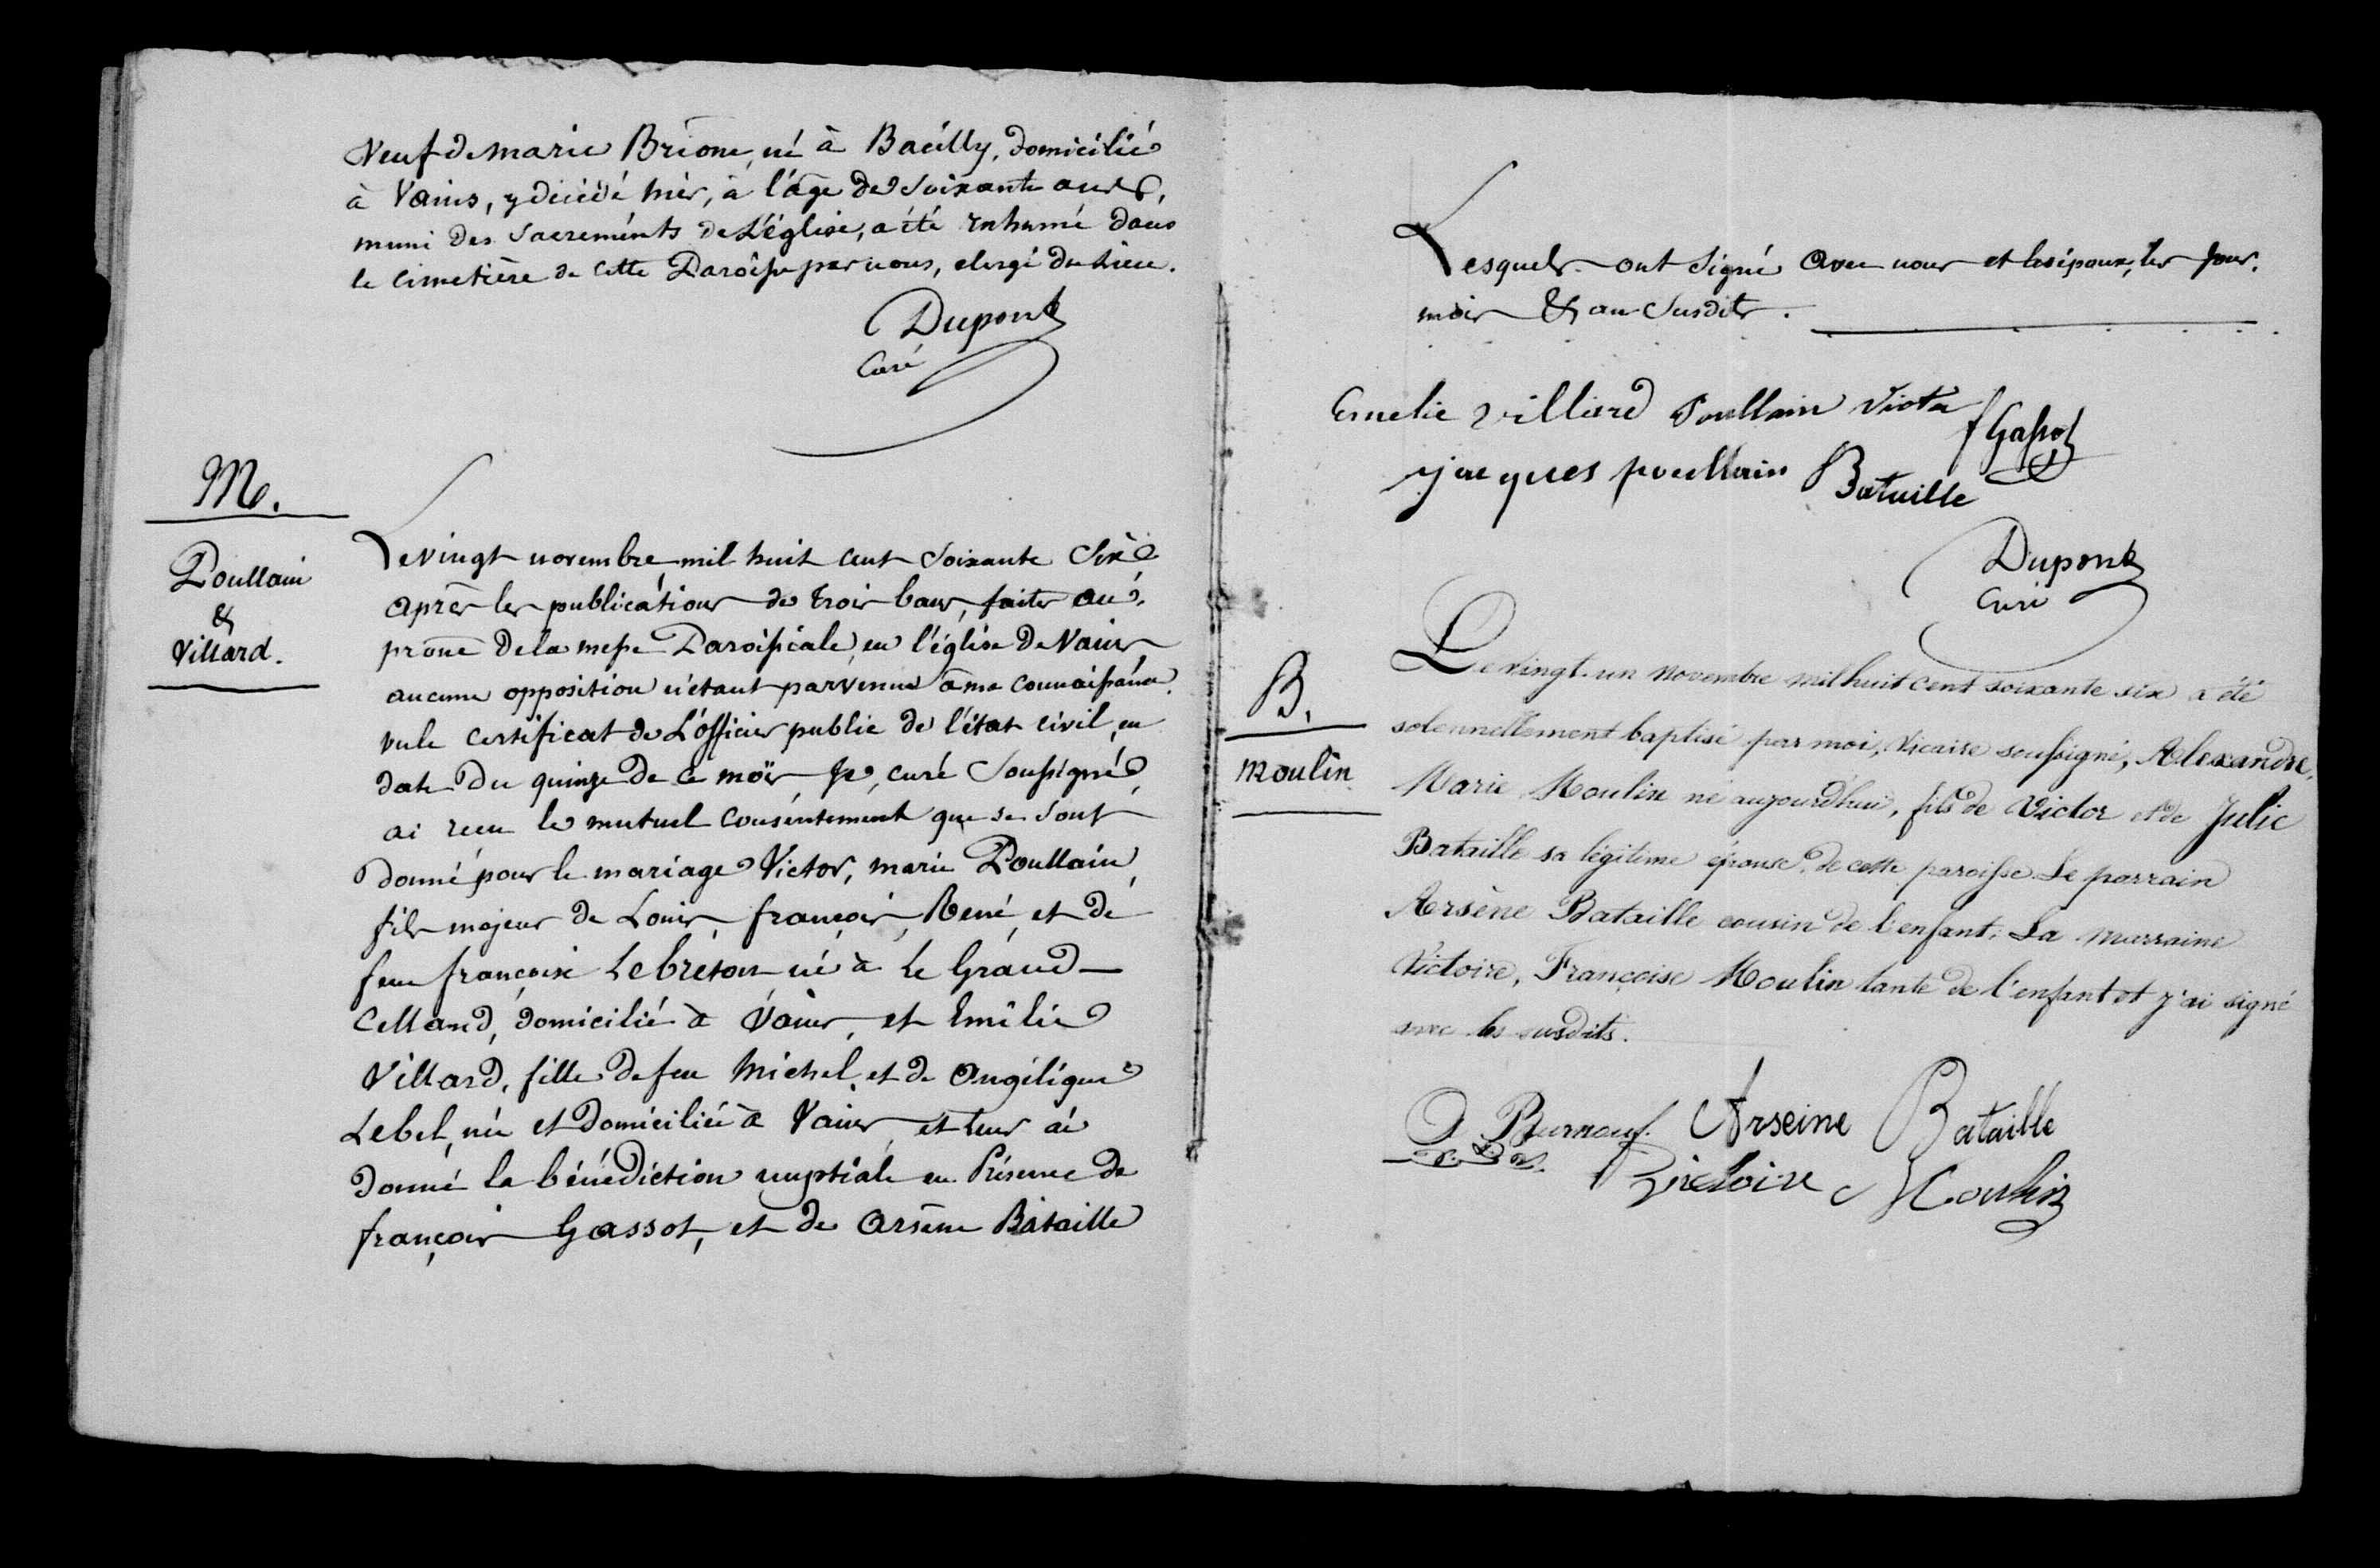 Veuf de marie Brione, né à Bacilly, domicilié
à Vains, y décédé hier, à l'âge de Soixante ans,
muni des Sacrements de L'église, a été inhumé dans
le cimetière de cette Paroisse par nous, clergé du lieu.
Dupont
Curé
M.
Poullain
&
Villard.
Le vingt novembre mil huit cent Soixante Six
après les publications de trois bans, faites au
prône de la messe Paroissiale, en l'église de Vains
aucune opposition n'étant parvenue à ma connaissance.
vu le certificat de L'officier public de l'état civil, en
date du quinze de ce mois, Je, curé Soussigné,
ai reçu le mutuel consentement que se sont
donné pour le mariage Victor, marie Poullain,
fils majeur de Louis, françois, René, et de
feue françoise Lebreton né à Le Grand
Celland, domicilié à Vains, et Emélie
Villard, fille de feu Michel, et de Angélique
Lebel, née et domiciliée à Vains, et leur ai
donné la bénédiction nuptiale en Présence de
françois Gassot, et de Arsène Bataille
Lesquels ont signé avec nous et les époux, les jour,
mois & an Susdits.
Emelie Villard Poullain Victor
f Gassot
jacques poullain Bataille
Dupont
Curé
B.
Moulin
Le vingt-un novembre mil huit cent soixante six a été
solennellement baptisé par moi, Vicaire soussigné, Alexandre,
Marie Moulin né aujourd'hui, fils de Victor et de Julie
Bataille sa légitime épouse, de cette paroisse. Le parrain
Arsène Bataille cousin de l'enfant. La marraine
Victoire, Françoise Moulin tante de l'enfant et j'ai signé
avec les susdits.
D Burnouf. Arseine Bataille
Victoire Moulin